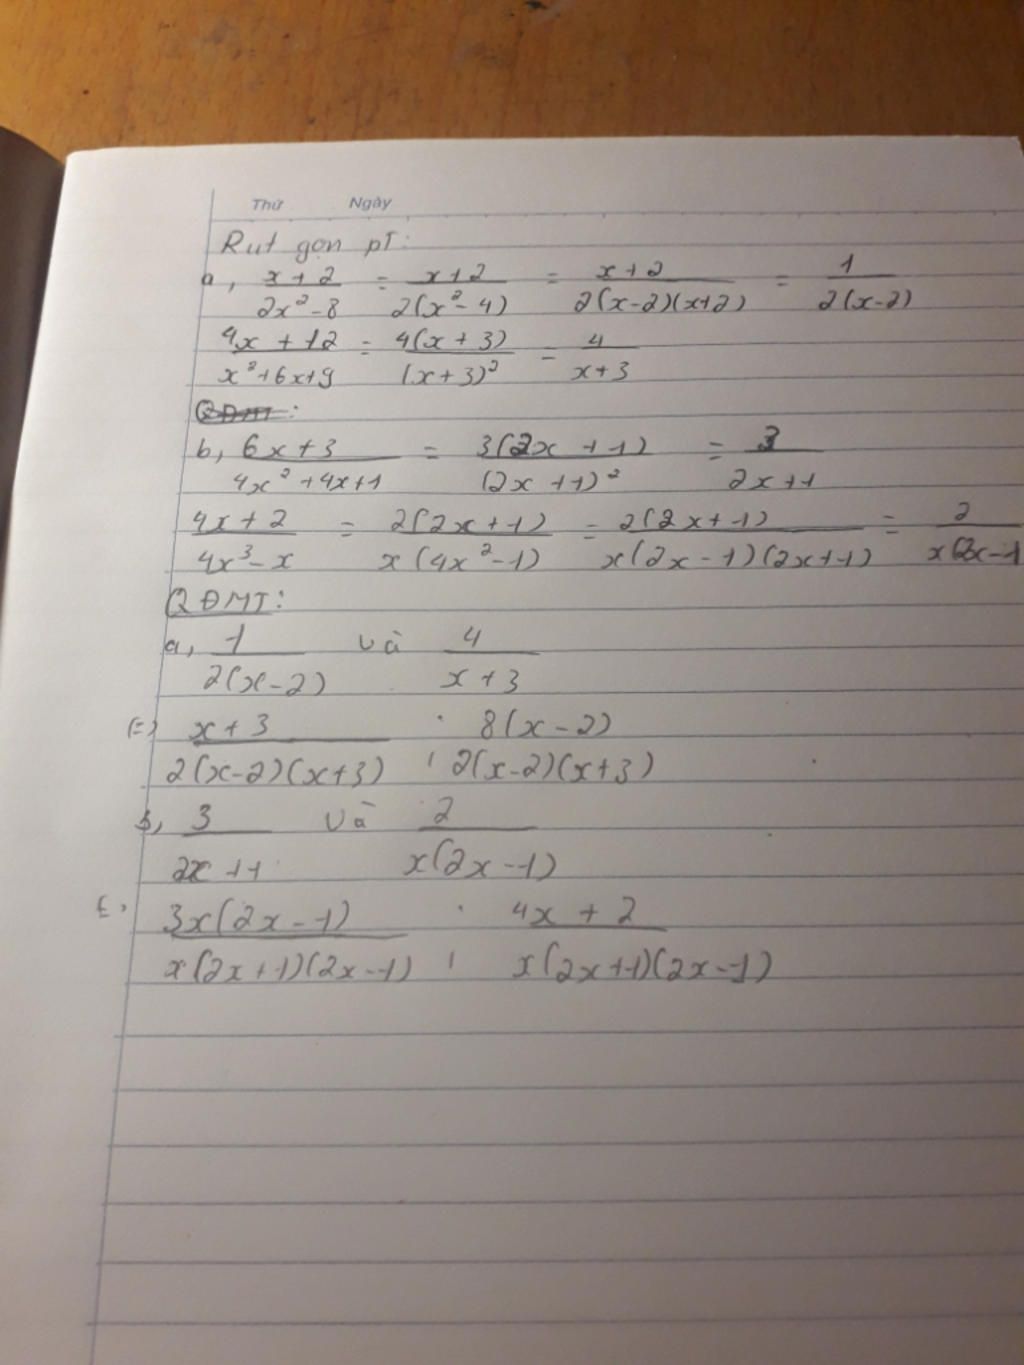 Thứ Ngày
Rut gọn pT:
a, x + 2 / 2x² - 8 = x + 2 / 2(x² - 4) = x + 2 / 2(x-2)(x+2) = 1 / 2(x-2)
4x + 12 / x² + 6x + 9 = 4(x + 3) / (x + 3)² = 4 / x + 3
QĐMT:
b, 6x + 3 / 4x² + 4x + 1 = 3(2x + 1) / (2x + 1)² = 3 / 2x + 1
4x + 2 / 4x³ - x = 2(2x + 1) / x(4x² - 1) = 2(2x + 1) / x(2x - 1)(2x + 1) = 2 / x(2x - 1
QĐMT:
a, 1 / 2(x - 2) và 4 / x + 3
(=) x + 3 / 2(x-2)(x+3) ; 8(x - 2) / 2(x-2)(x+3)
b, 3 / 2x + 1 và 2 / x(2x - 1)
3x(2x - 1) / x(2x + 1)(2x - 1) ; 4x + 2 / x(2x + 1)(2x - 1)